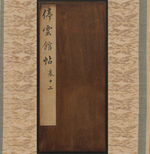 停雲館帖 卷十二